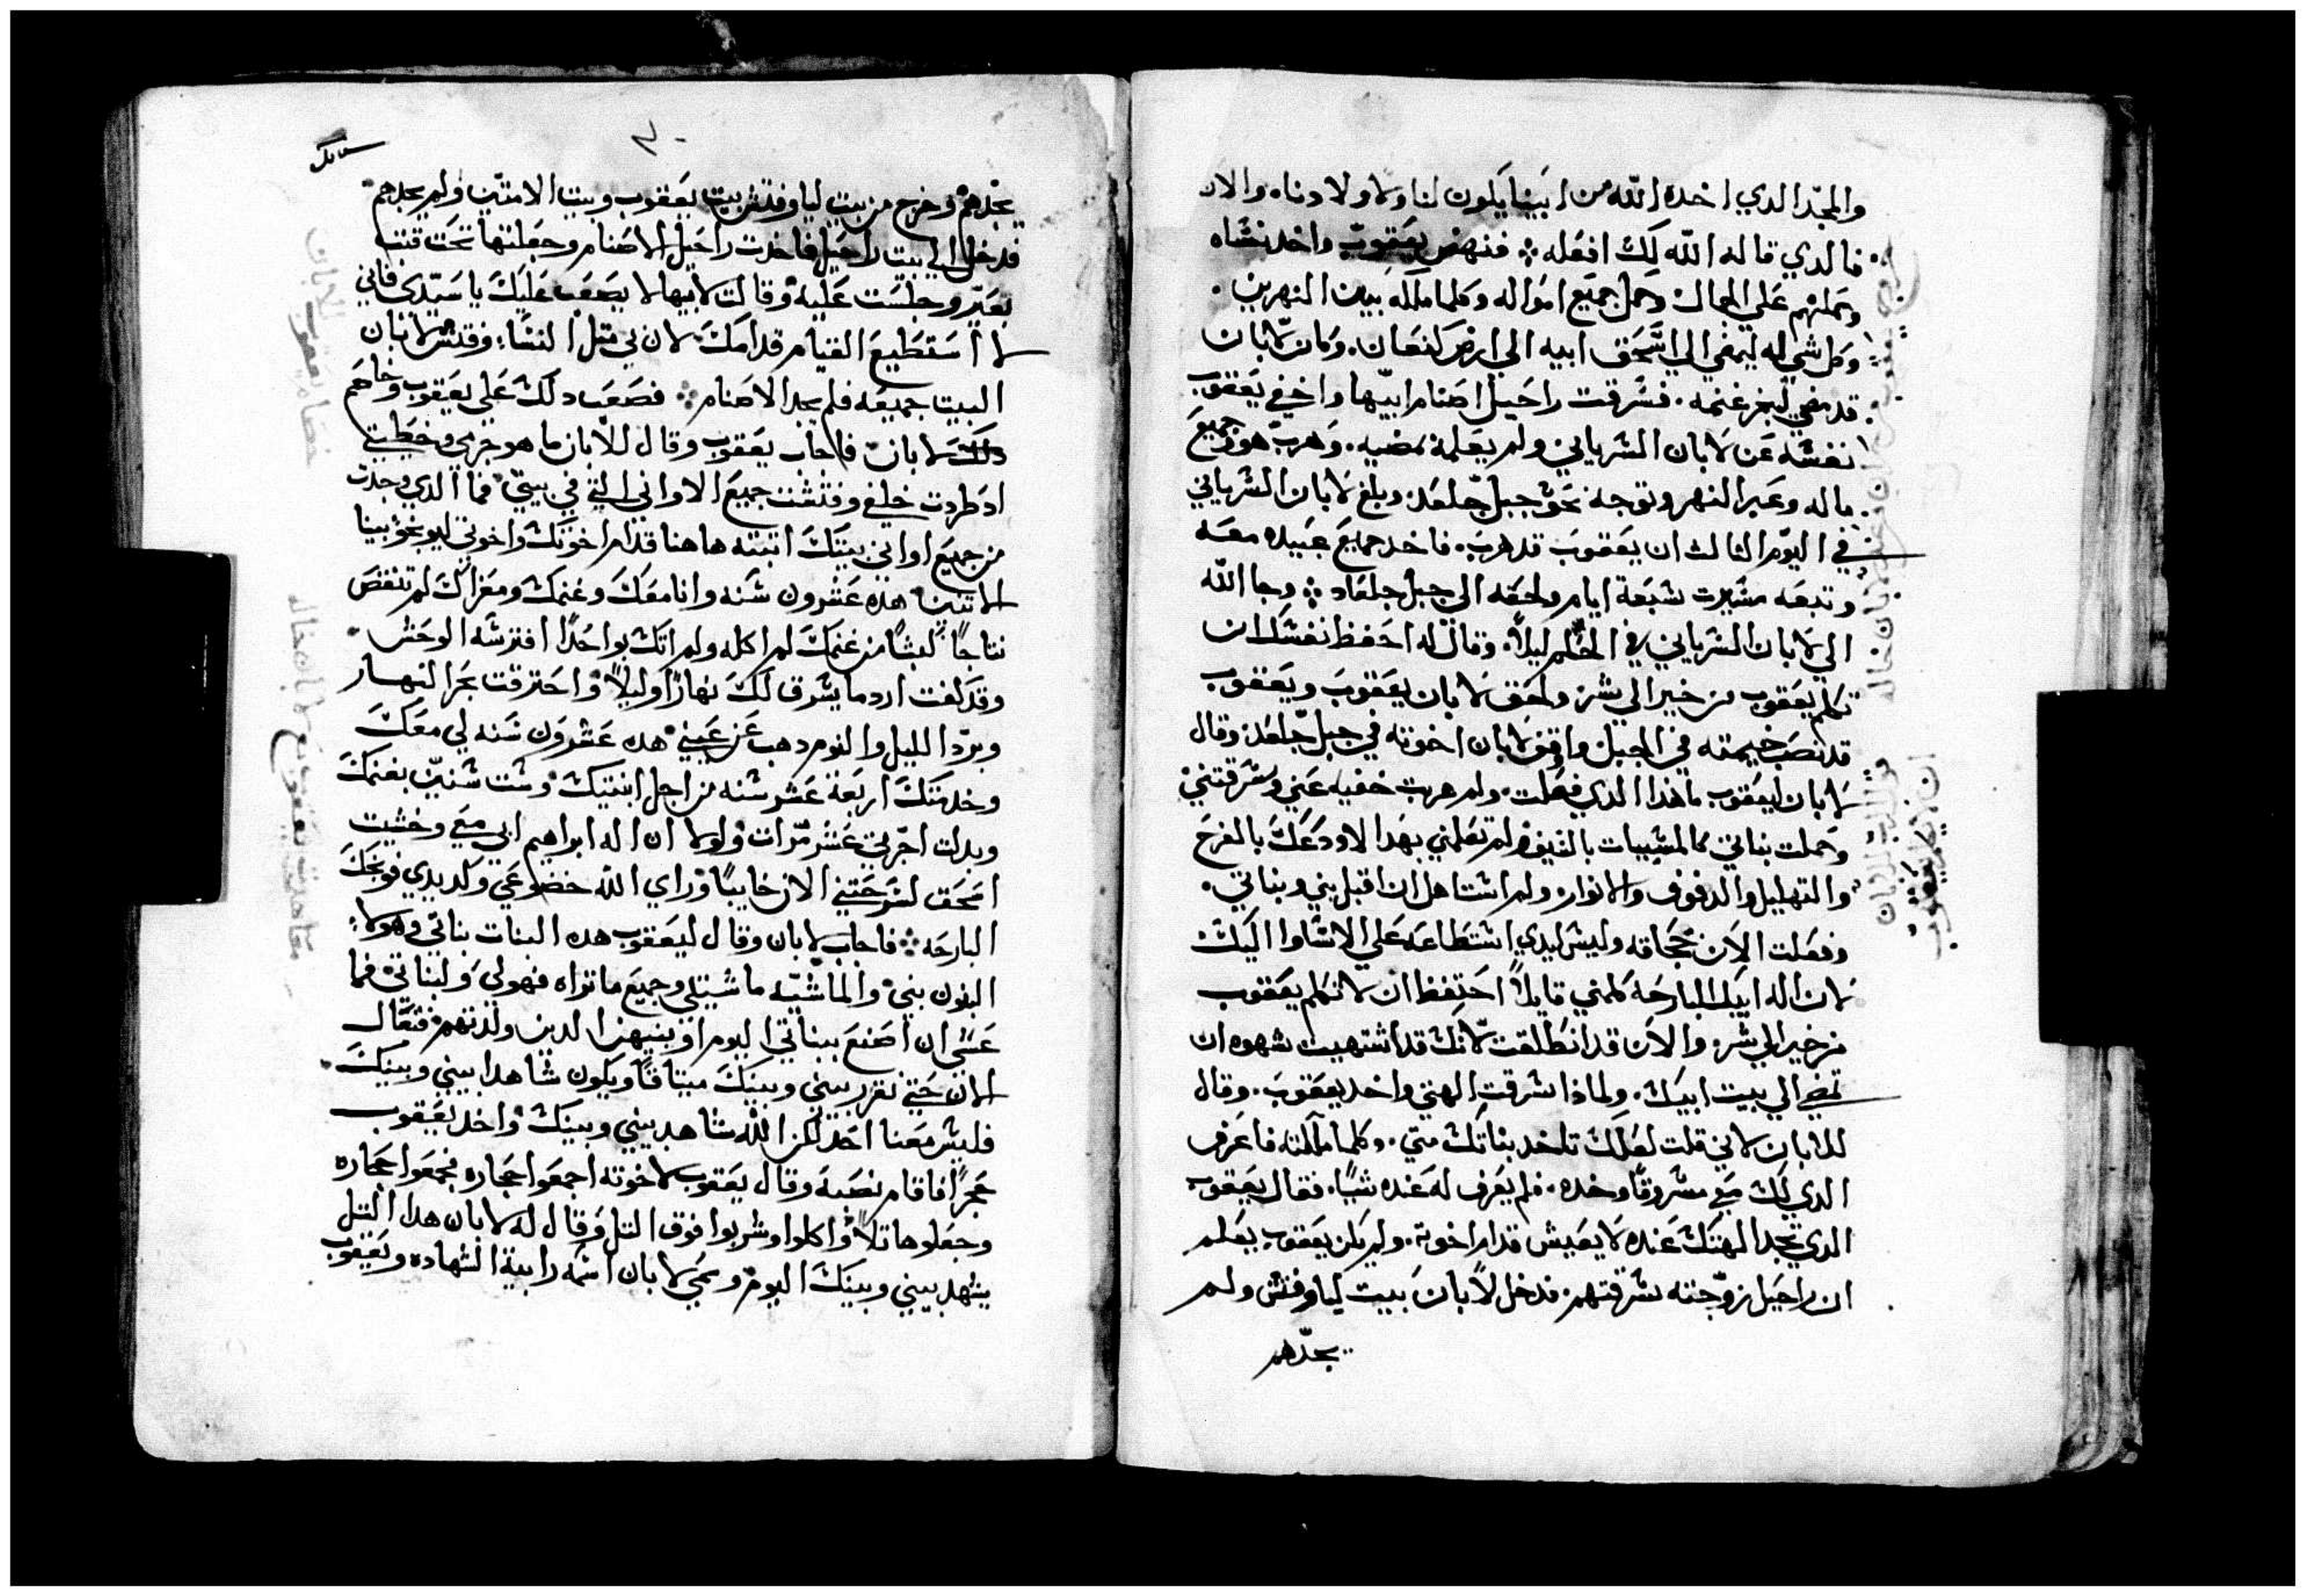 والمجد الدي اخده الله من ابينا يكون لنا ولاولادنا، والان
فالدي قاله الله لك افعله ⁘ فنهض يعقوب واخد نشاه
وحملهم علي الجمال وحمل جميع امواله وكلما ملكه ببين النهرين.
وكل شي له ليمضي الي اشحق ابيه الي ارض كنعان. وكان لابان
قد مضي ليجز غنمه. فشرقت راحيل اصنام ابيها واخفي يعقوب
نفشه عن لابان الشرياني ولم يعلمه بمضيه. وهرب هو وجميع
ماله وعبر النهر وتوجه نحو جبل جلعد. وبلغ لابان الشرياني
في اليوم التالت ان يعقوب قد هرب. فاخد جميع عبيده معه
وتبعه مشيرت شبعة ايام ولحقه الي جبل جلعاد ⁘ وجا الله
الي لابان الشرياني في الحلم ليلاً. وقال له احفظ نفشك ان
تكلم يعقوب من خير الي شر. ولحق لابان يعقوب ويعقوب
قد نصب خيمته في الجبل واوقف لابان اخوته في جبل جلعد. وقال
لابان ليعقوب ما هذا الدي فعلت. ولم هربت خفيه عني وشرقتني
وحملت بناتي كالمشبيات بالشيف ولم تعلمني بهدا لاودعك بالفرح
والتهليل والدفوف والانوار. ولم اشتاهل ان اقبل بني وبناتي.
وفعلت الان بحجاقه وليش ليدي اشتطاعه علي الاشاوا اليك
لان اله ابيك البارحه كلمني قايلاً احتفظ ان لا تكلم يعقوب
من خير الي شر. والان قد انطلقت لانك قد اشتهيت شهوه ان
تمضي الي بيت ابيك. ولمادا شرقت الهتي واخد يعقوب. وقال
للابان لاني قلت لعلك تاخد بناتك مني. وكلما ملكته فاعرف
الدي لك معي مشروقاً وخده. فلم يعرف له عنده شيًا. فقال يعقوب
الدي تجد الهتك عنده لا يعيش قدام اخوته. ولم يكن يعقوب يعلم
ان راحيل زوجته شرقتهم. فدخل لابان ببيت ليا وفتش ولم
يجدهم
٣٠
يجدهم وخرج من بيت ليا وفتش بيت يعقوب وبيت الامتين ولم يجدهم
فدخل الي بيت راحيل فاخدت راحيل الاصنام وجعلتها تحت قتب
بعير وجلست عليه وقالت لابيها لا يصعب عليك يا سيدي فاني
لا استطيع القيام قدامك لان بي متل النشاء، وفتش لابان
البيت جميعه فلم يجد الاصنام ⁘ فصعب دلك علي يعقوب وخاصم
دلك لابان فاجاب يعقوب وقال للابان ما هو جرمي وخطيتي
اد طردت خلفي وفتشت جميع الاواني التي في بيتي فما الدي وجدت
من جميع اواني بيتك اتبته هاهنا قدام اخوتك واخوتي ليوبخو بينا
الاتنين هده عشرون شنه وانا معك وغنمك ومعزاك لم تنقص
نتاجًا كبشًا من غنمك لم اكله ولم اتك بواحدًا افترشه الوحش
وقد كفت ارد ما يشرق لك نهارًا وليلاً واحترقت بحر النهار
وبرد الليل والنوم دهب عن عيني هده عشرون شنه لي معك
وخدمتك اربعة عشر شنه من اجل ابنتيك وشت شنين بغنمك
وبدلت اجرتي عشر مرات ولولا ان اله ابراهيم ابي معي وخشيت
اسحق لشرحتني الان خايبًا وراي الله خضوعي وكد يدي فوبخك
البارحه ⁘ فاجاب لابان وقال ليعقوب هده البنات بناتي وهولاء
البنون بني والماشيه ماشيتي وجميع ما تراه فهو لي ولبناتي فما
عشي ان اصنع ببناتي اليوم او بنيهن الدين ولدتهم فتعال
الان حتي نقرر بيني وبينك ميتاقًا ويكون شاهدا بيني وبينك
فليش معنا احد لكن الله شاهد بيني وبينك واخد يعقوب
حجرًا فاقام نصبة وقال يعقوب لاخوته اجمعوا حجاره فجمعوا حجاره
وجعلوها تلاً واكلوا وشربوا فوق التل وقال له لابان هدا التل
يشهد بيني وبينك اليوم وسمي لابان اشمه رابية الشهاده ويعقوب